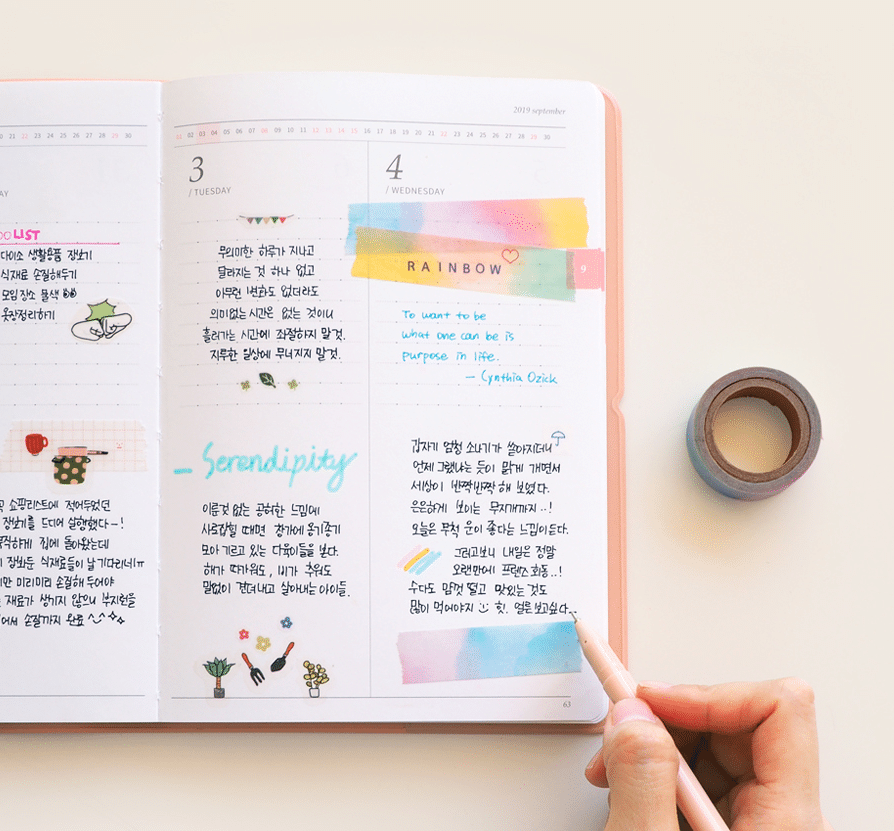 2019 september
20 21 22 23 24 25 26 27 28 29 30
01 02 03 04 05 06 07 08 09 10 11 12 13 14 15 16 17 18 19 20 21 22 23 24 25 26 27 28 29 30
AY
DO LIST
다이소 생활용품 장보기
식재료 손질해두기
모임장소 물색
옷장정리하기
쇼핑리스트에 적어두었던
장보기를 드디어 실행했다~!
집에 돌아왔는데
장보둔 식재료들이 날 기다리네!ㅠ
미리미리 손질해 두어야
재료가 생기지 않으니 부지런을
손질까지 완료 ^^
3
/ TUESDAY
무의미한 하루가 지나고
달라지는 것 하나 없고
아무런 변화도 없더라도
의미없는 시간은 없는 것이니
흘러가는 시간에 좌절하지 말 것.
지루한 일상에 무너지지 말것.
Serendipity
이룬것 없는 공허한 느낌에
사로잡힐 때면 창가에 옹기종기
모아 기르고 있는 다육이들을 보다.
해가 따가워도, 비가 추워도
말없이 견뎌내고 살아내는 아이들.
4
/ WEDNESDAY
RAINBOW
9
To want to be
what one can be is
purpose in life.
— Cynthia Ozick
갑자기 엄청 소나기가 쏟아지더니
언제 그랬냐는 듯이 맑게 개면서
세상이 반짝반짝 해 보였다.
은은하게 보이는 무지개까지..!
오늘은 무척 운이 좋다는 느낌이 든다.
그러고보니 내일은 정말
오랜만에 프렌즈 회동..!
수다도 맘껏 떨고 맛있는 것도
많이 먹어야지 힛. 얼른 보고싶다..
63